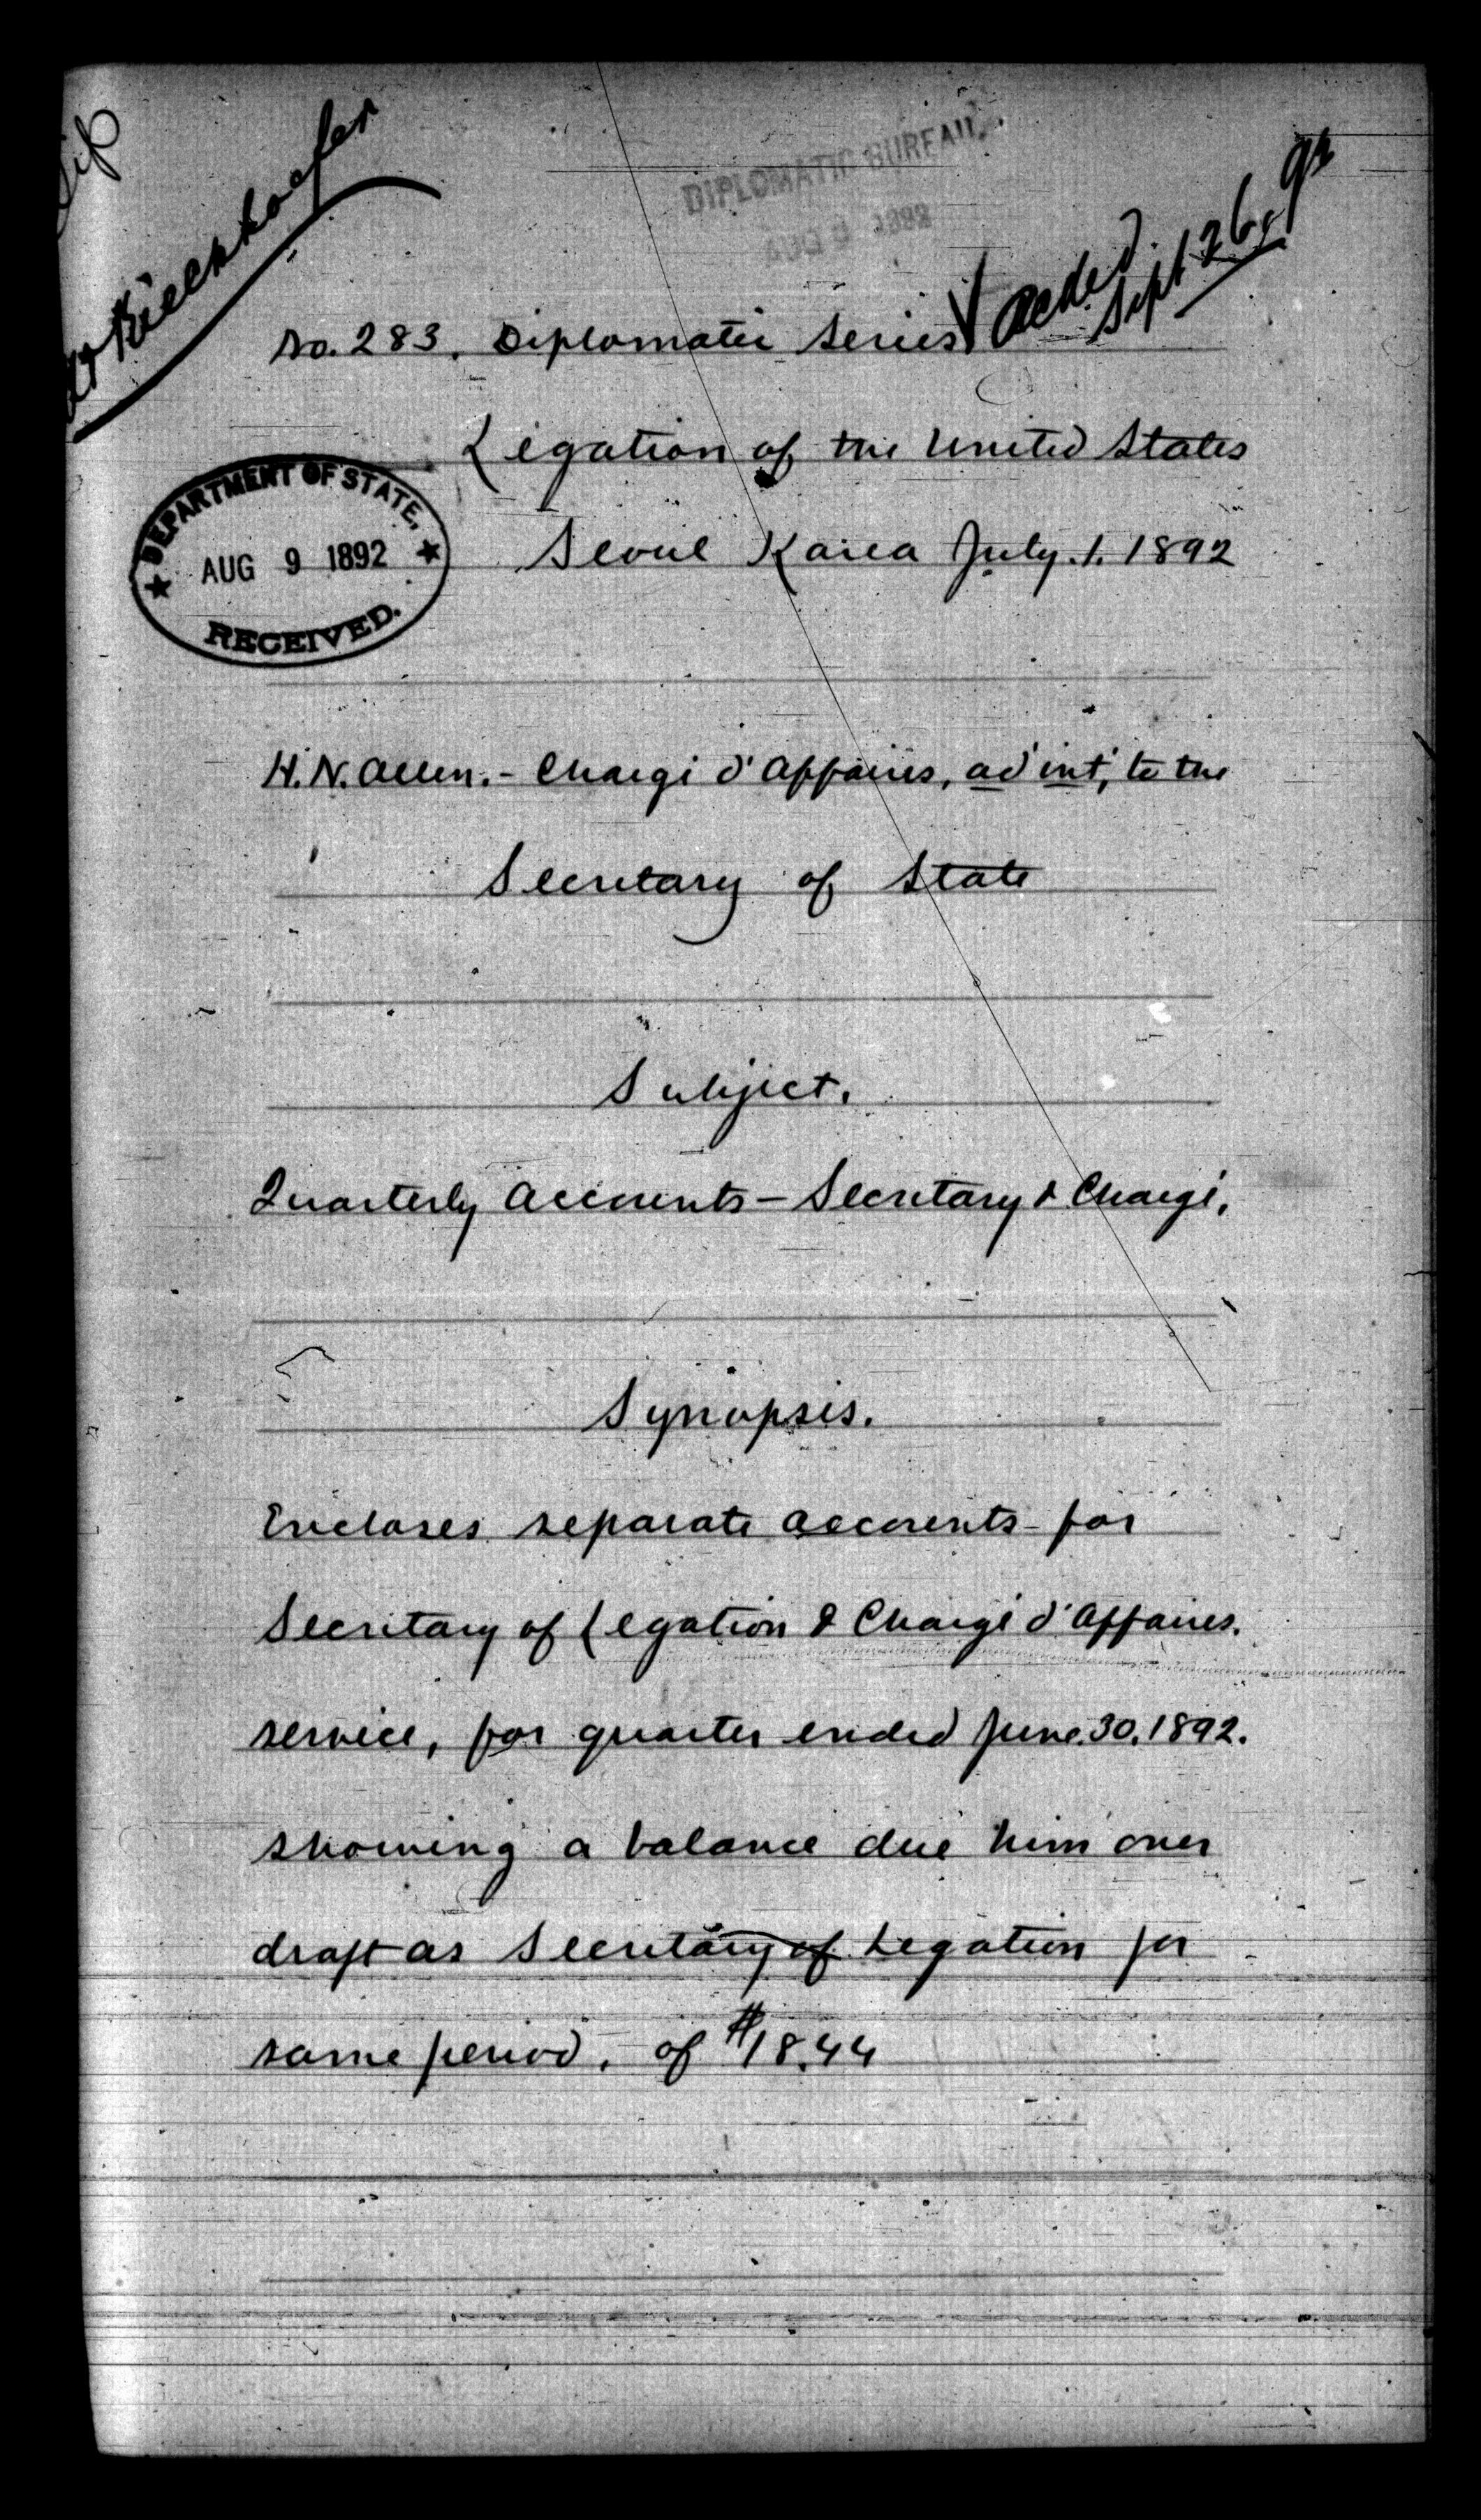 Dip
Mr Kieckhoefer
DIPLOMATIC BUREAU.
AUG 9 1892
Ackd.
Sept 26, 92
No. 283. Diplomatic Series
Legation of the United States
Seoul Korea July. 1. 1892
DEPARTMENT OF STATE,
AUG 9 1892
RECEIVED.
H. N. Allen. - Chargé d'Affaires, ad int, to the
Secretary of State
Subject.
Quarterly Accounts - Secretary & Chargé.
Synopsis.
Encloses separate accounts for
Secretary of Legation & Chargé d'Affaires.
service, for quarter ended June. 30. 1892.
showing a balance due him over
draft as Secretary of Legation for
same period, of $18.44